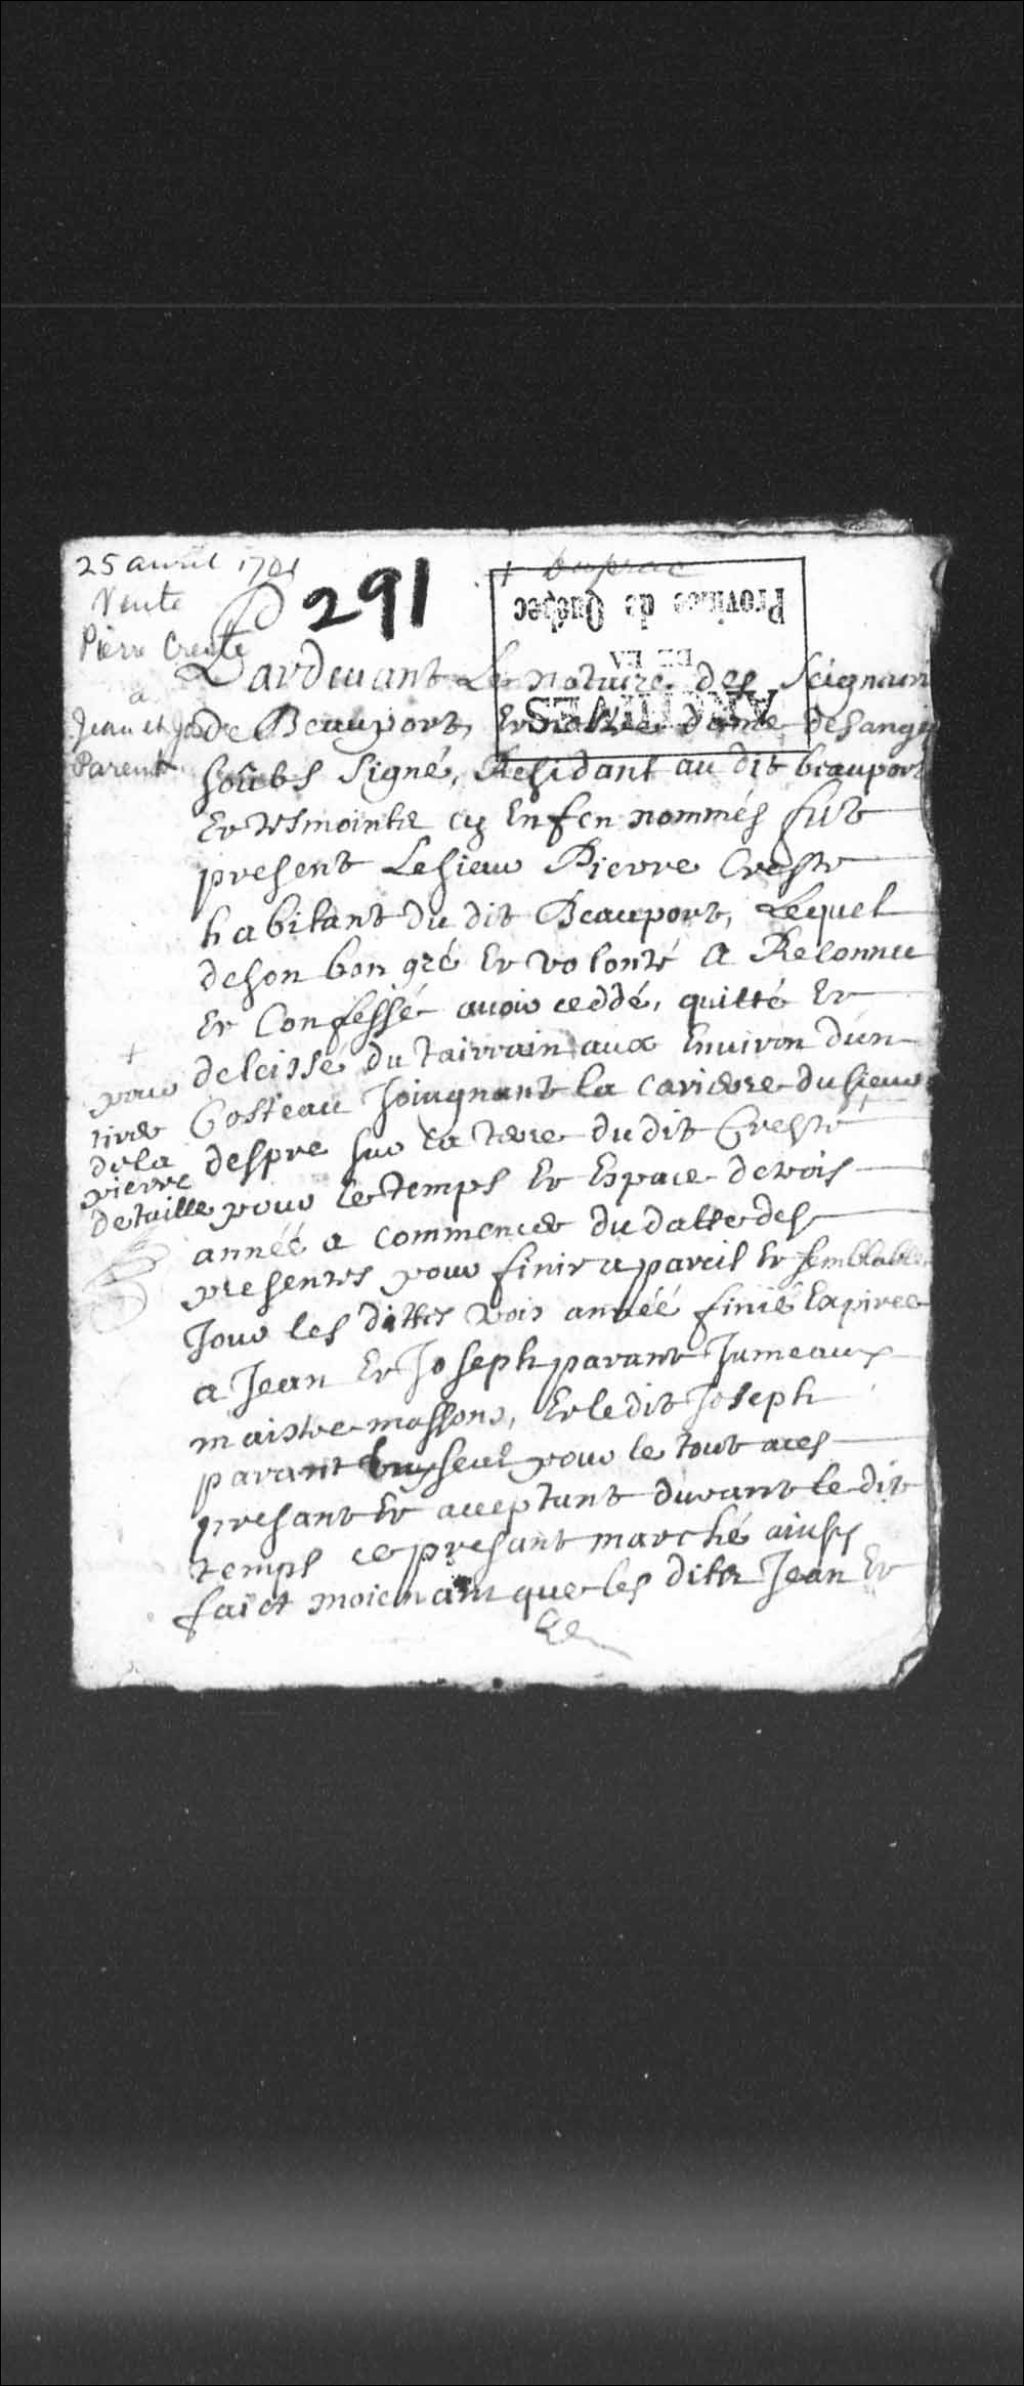 25 avril 1701
Vente
Pierre Creste
a
Jean et Jos
Parent
291
+ Duprac
Province de Québec
DE LA
ARCHIVES
Pardevant Le notaire des Seigneuri
de Beauport, Et nostre dame desange
soubs signé, Residant au dit beauport
Et tesmointz cy Enfen nommés fut
present Lesieur Pierre Creste
habitant du dit Beauport, Lequel
deson bon gré Et volonté a Reconnu
Et Confessé avoir ceddé, quitté Et
deleissé du tairrain aux Environ d'un
Costeau Joingnant la carierre du sieur
despre sur la terre du dit Cresté
+
pour
tirer
dela
pierre
detaille
pour le temps Et Espace de trois
année a commencer du datte des
presentes pour finir a pareil Et semblable
Jour les dittes trois année finié Expirée
a Jean Et Joseph parant Jumeaux
maistre massons, Et ledit Joseph
parant luy seul pour le tout a ces
presant Et acceptant durant le dit
temps ce presant marché ainsy
faict moienant que les dits Jean Et